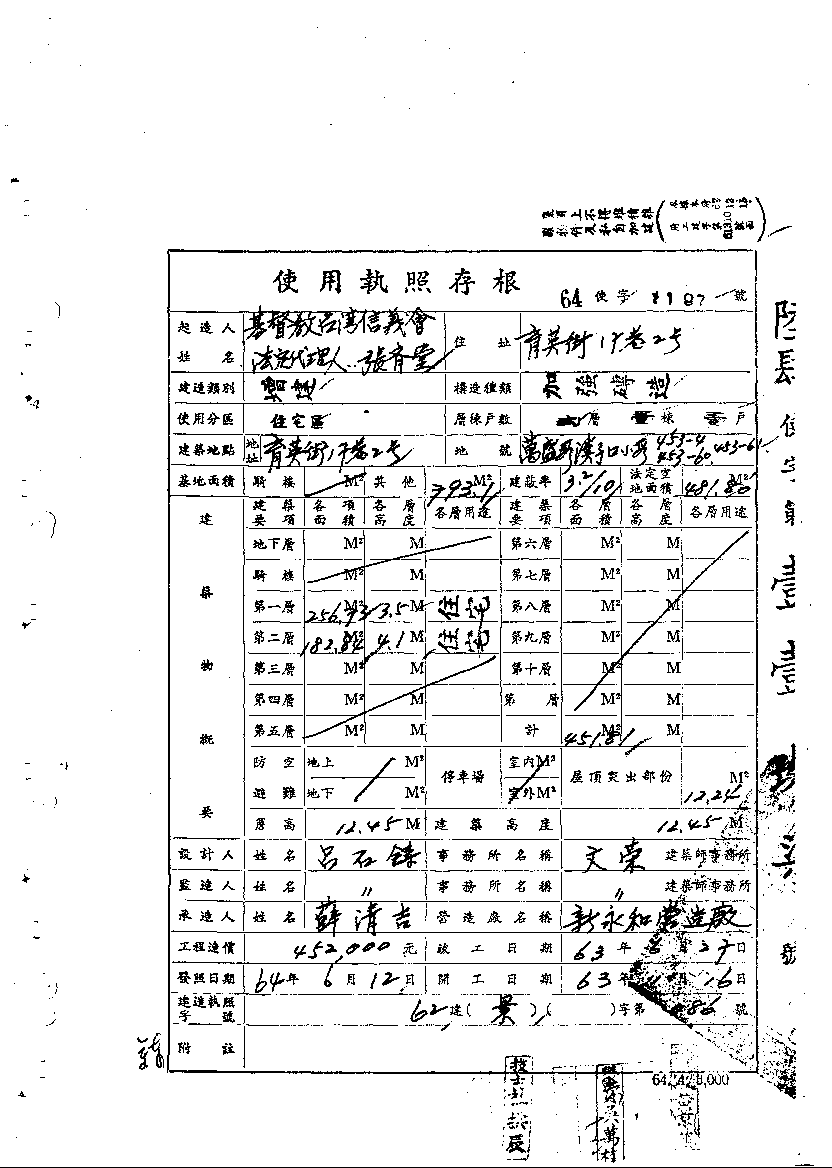 使用執照存根
64 使字 號
起造人姓名 基督教台灣信義會 法定代理人 張齊堂 住址 育英街17巷2号
建造類別 增建 構造種類 加強磚造
使用分區 住宅區 層棟戶數 層 棟 戶
建築地點 地址 育英街17巷2号 地號 453-4 453-60 453-61
基地面積 騎樓 M² 其他 793.1 M² 建蔽率 3.2/10 法定空地面積 481.80 M²
建築物概要 建築要項 各項面積 各層高度 各層用途 建築要項 各層面積 各層高度 各層用途
地下層 M² M 第六層 M² M
騎樓 M² M 第七層 M² M
第一層 256.93 M² 3.5 M 住宅 第八層 M² M
第二層 182.84 M² 4.1 M 住宅 第九層 M² M
第三層 M² M 第十層 M² M
第四層 M² M 第 層 M² M
第五層 M² M 計 451.81 M² M
防空避難 地上 M² 地下 M² 停車場 室內M² 室外M² 屋頂突出部份 12.24 M²
簷高 12.45 M 建築高度 12.45 M
設計人 姓名 呂石鋒 事務所名稱 文榮 建築師事務所
監造人 姓名 〃 事務所名稱 〃 建築師事務所
承造人 姓名 薛清吉 營造廠名稱 新永和營造廠
工程造價 452,000 元 竣工日期 63年 月27日
發照日期 64年6月12日 開工日期 63年 月16日
建造執照字號 62建(景)( )字第 號
附註